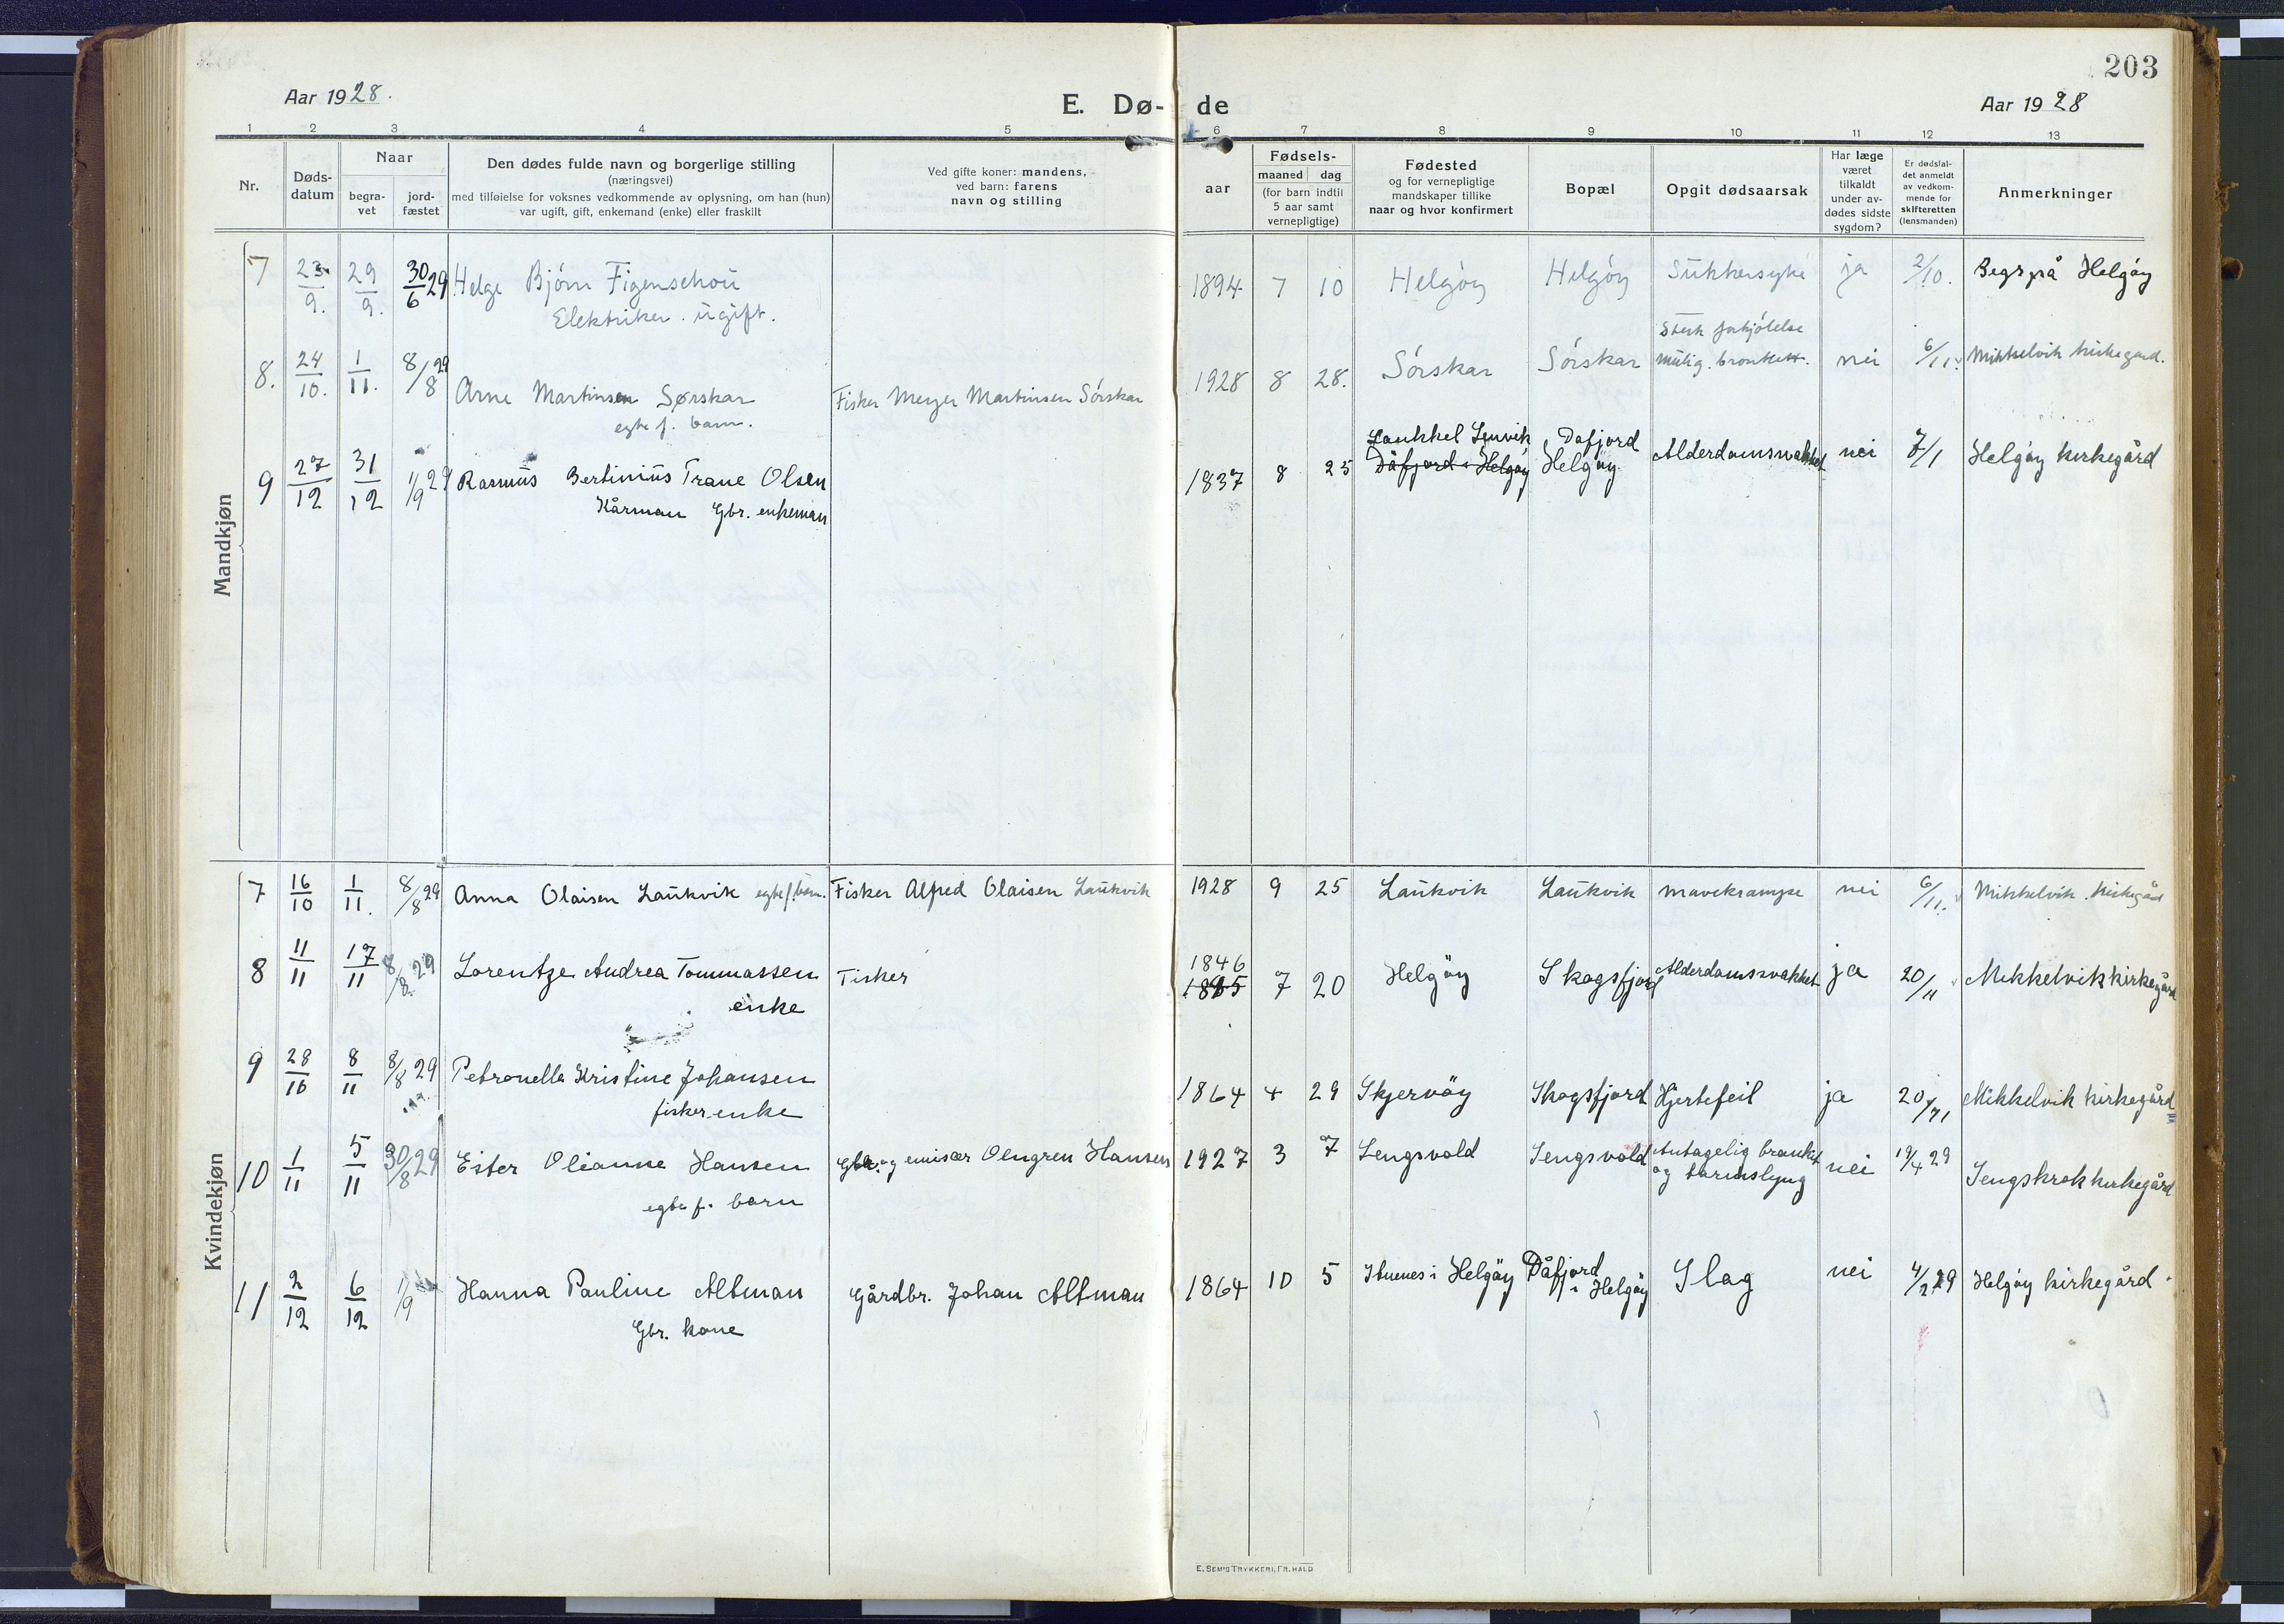 203
Aar 1928.
E. Dø-de
Aar 1928
1 2 3 4 5 6 7 8 9 10 11 12 13
Nr.
Døds-
datum
Naar
begra-
vet
jord-
fæstet
Den dødes fulde navn og borgerlige stilling
(næringsvei)
med tilføielse for voksnes vedkommende av oplysning, om han (hun)
var ugift, gift, enkemand (enke) eller fraskilt
Ved gifte koner: mandens,
ved barn: farens
navn og stilling
aar
Fødsels-
maaned dag
(for barn indtil
5 aar samt
vernepligtige)
Fødested
og for vernepligtige
mandskaper tillike
naar og hvor konfirmert
Bopæl
Opgit dødsaarsak
Har læge
været
tilkaldt
under av-
dødes sidste
sygdom?
Er dødsfal-
det anmeldt
av vedkom-
mende for
skifteretten
(lensmanden)
Anmerkninger
Mandkjøn
7 23/9. 29/9. 30/6 29 Helge Bjørn Figenschou 1894 7 10 Helgöy Helgöy Sukkersyke ja 2/10. Begr på Helgöy
Elektriker. ugift.
Sterk forkjölelse
8. 24/10. 1/11. 8/8 29 Arne Martinsen Sørskar Fisker Meyer Martinsen Sörskar 1928 8 28. Sörskar Sörskar mulig. bronkett. nei 6/11. Mikkelvik kirkegaard.
egte f. barn.
Laukkel Lenvik Dafjord
9 27/12 31/12 1/9 29 Rasmus Bertinius Trane Olsen 1837 8 25 Dåfjord i Helgöy Helgöy Alderdomsvakhet nei 7/1 Helgöy kirkegård
Kårman Gbr. enkeman
Kvindekjøn
7 16/10 1/11. 8/8 29 Anna Olaisen Laukvik egte f. barn. Fisker Alfred Olaisen Laukvik 1928 9 25 Laukvik Laukvik mavekrampe nei 6/11. Mikkelvik kirkegård
1846
8 11/11 17/11 8/8. 29 Lorentze Andrea Tommassen Fisker 1865 7 20 Helgöy Skogsfjord Alderdomsvakhet ja 20/11 Mikkelvik kirkegård
enke
9 28/10 8/11 8/8 29 Petronella Kristine Johansen 1864 4 29 Skjervöy Skogsfjord Hjertefeil ja 20/11 Mikkelvik kirkegård
fisker enke
10 1/11 5/11 30/8 29 Ester Olianne Hansen Gbr. og emisær Olngren Hansen 1927 3 7 Lengsvold Lengsvold Antagelig bronkit nei 19/4 29 Lengskrok kirkegård
og tarmslyng
egte f. barn
11 2/12 6/12 1/9 Hanna Pauline Altman Gårdbr. Johan Altman 1864 10 5 Stuenes i Helgöy Dåfjord i Helgöy Slag nei 4/2 29 Helgöy kirkegård.
Gbr. kone
E. SEM'S TRYKKERI, FR. HALD